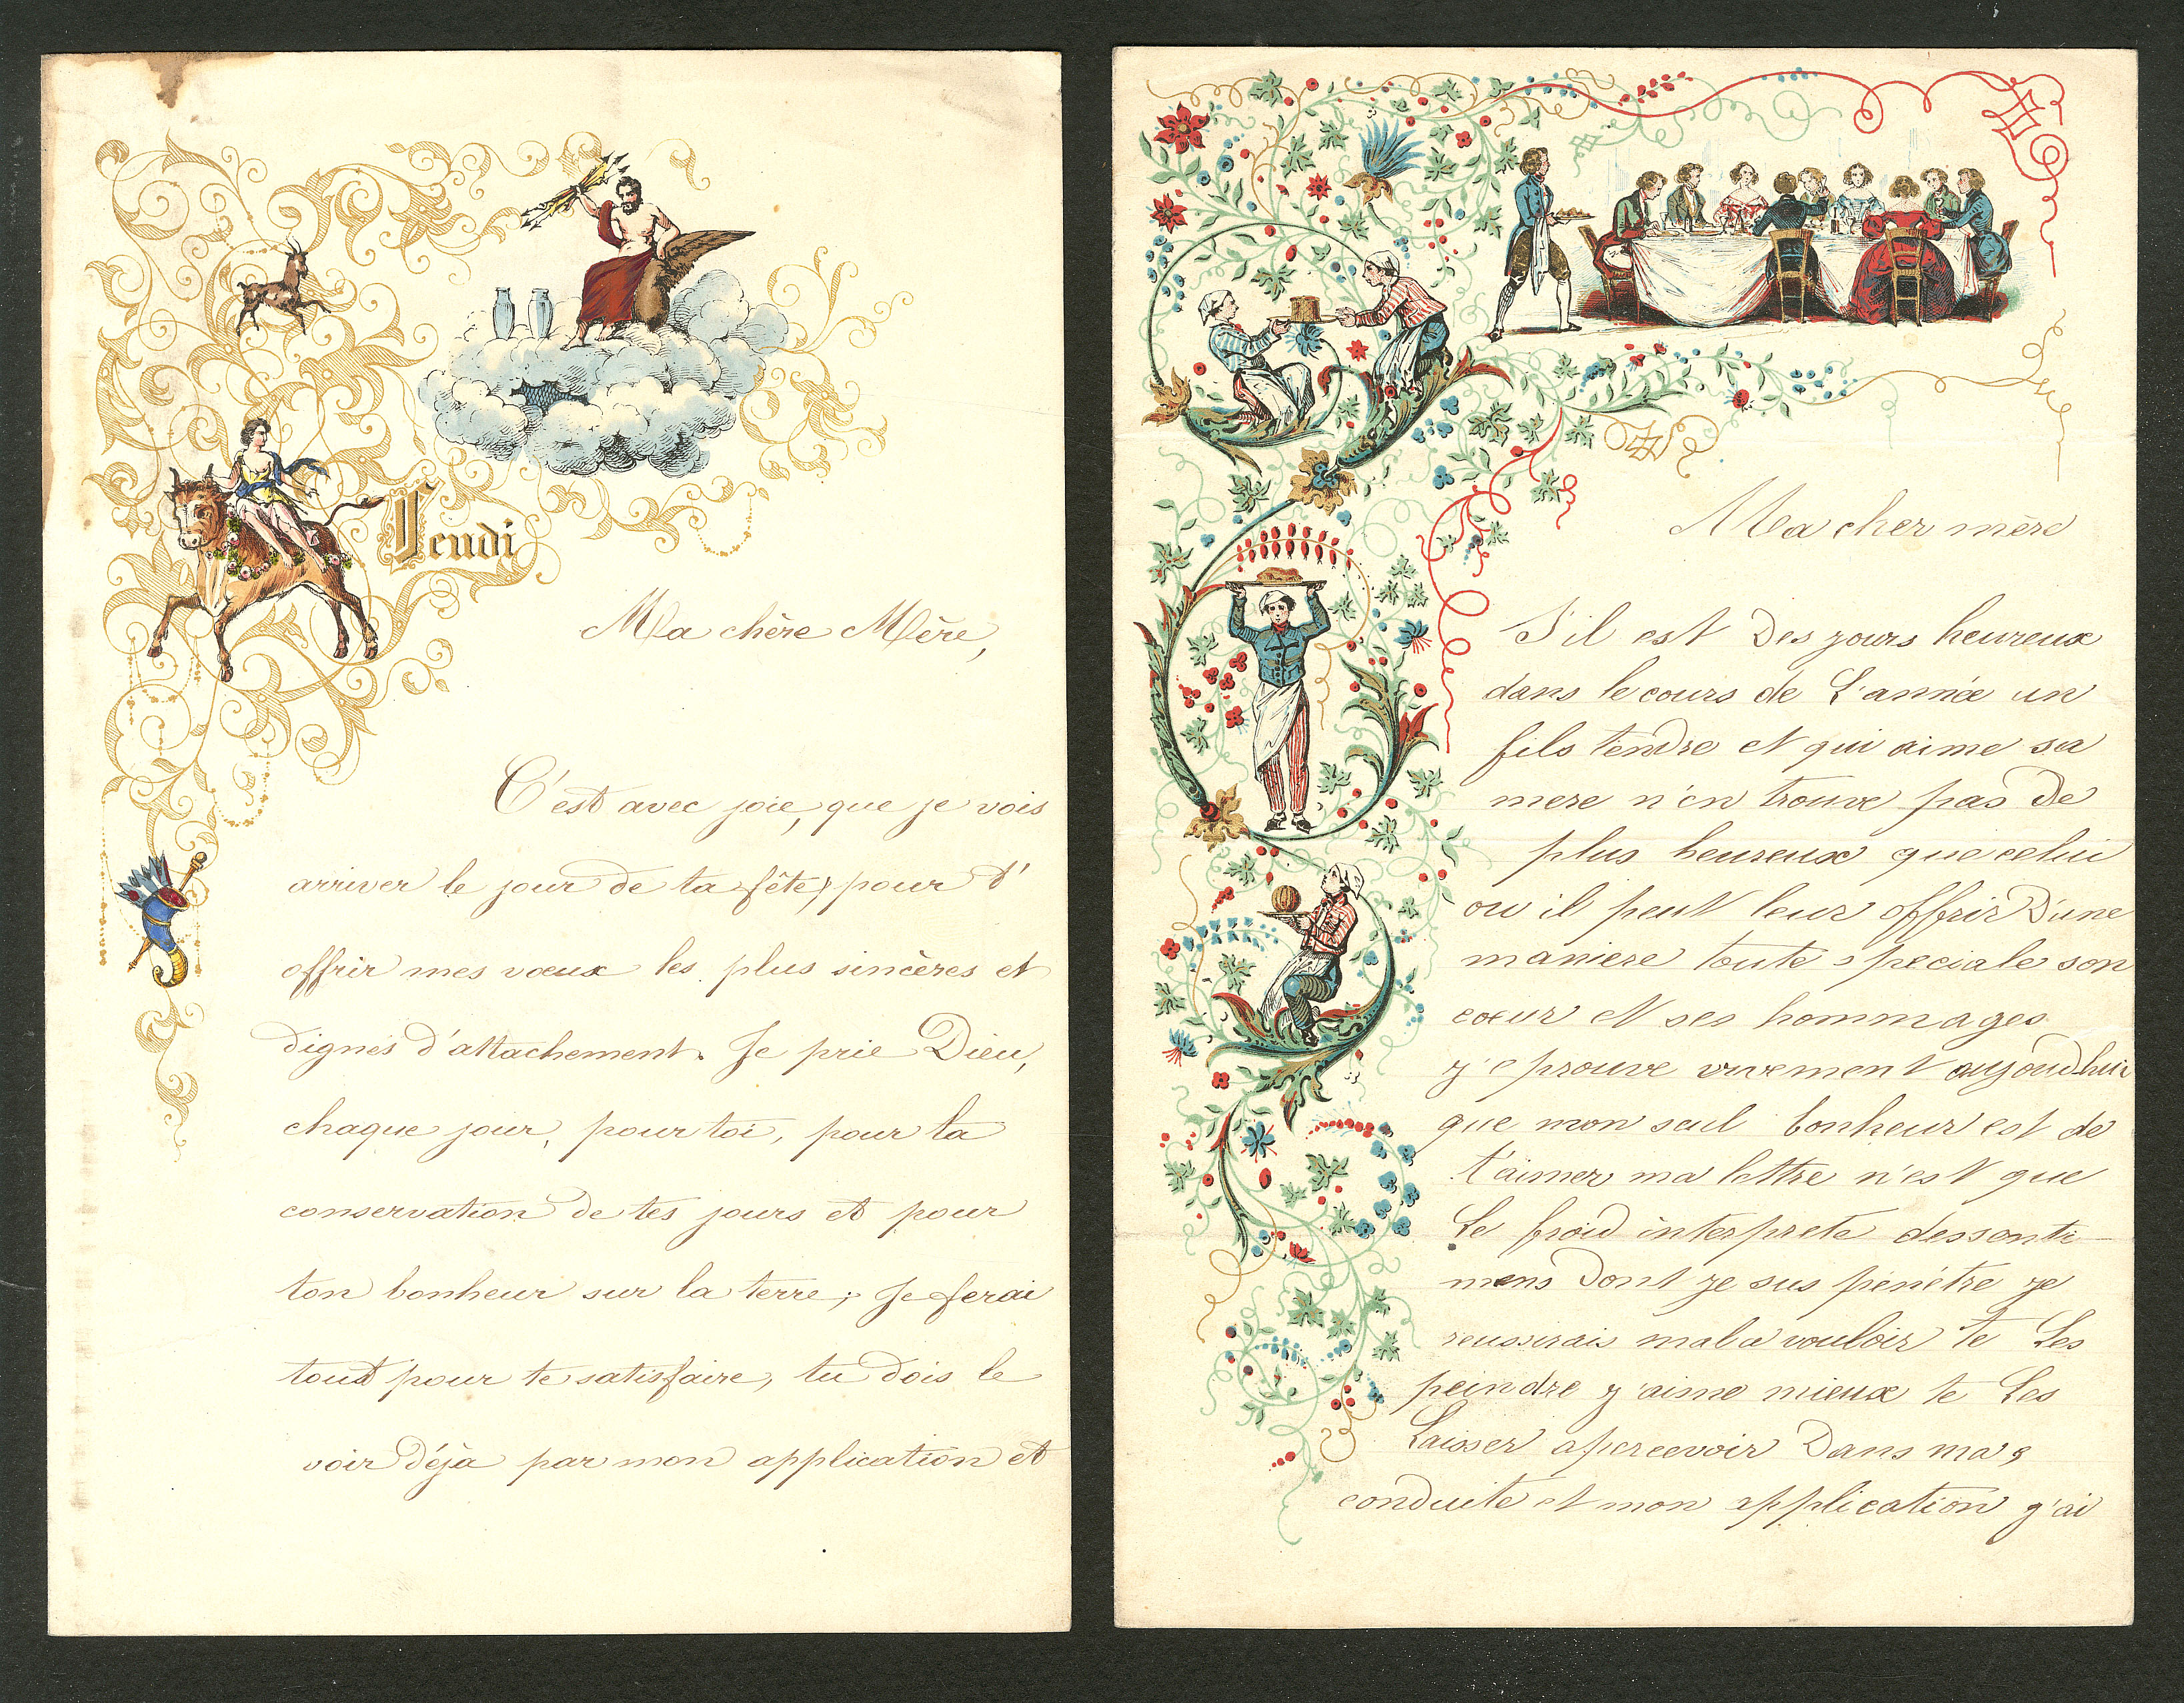 Jeudi
Ma chère Mère,
C'est avec joie, que je vois
arriver le jour de ta fête, pour t'
offrir mes vœux les plus sincères et
dignes d'attachement. Je prie Dieu,
chaque jour, pour toi, pour la
conservation de tes jours et pour
ton bonheur sur la terre; Je ferai
tout pour te satisfaire, tu dois le
voir déjà par mon application et
Ma cher mère
S'il est Des jours heureux
dans le cours de L'année un
fils tendre et qui aime sa
mere n'en trouve pas de
plus heureux que celui
ou il peut leur offrir D'une
maniere toute speciale son
cœur et ses hommages
j'eprouve vivement aujoudhui
que mon seul bonheur est de
t'aimer ma lettre n'est que
Le froid interprete dessenti-
mens Dont je sus pénétre je
reussirais mal a vouloir te Les
peindre j'aime mieux te Les
Laisser apercevoir Dans ma
conduite et mon application j'ai